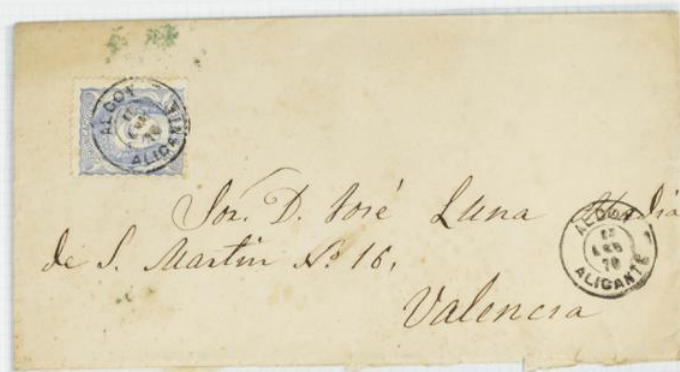 ALCOY
ALICANTE
Sor. D. José Luna
de S. Martin No. 16,
Valencia
ALCOY
15
70
ALICANTE